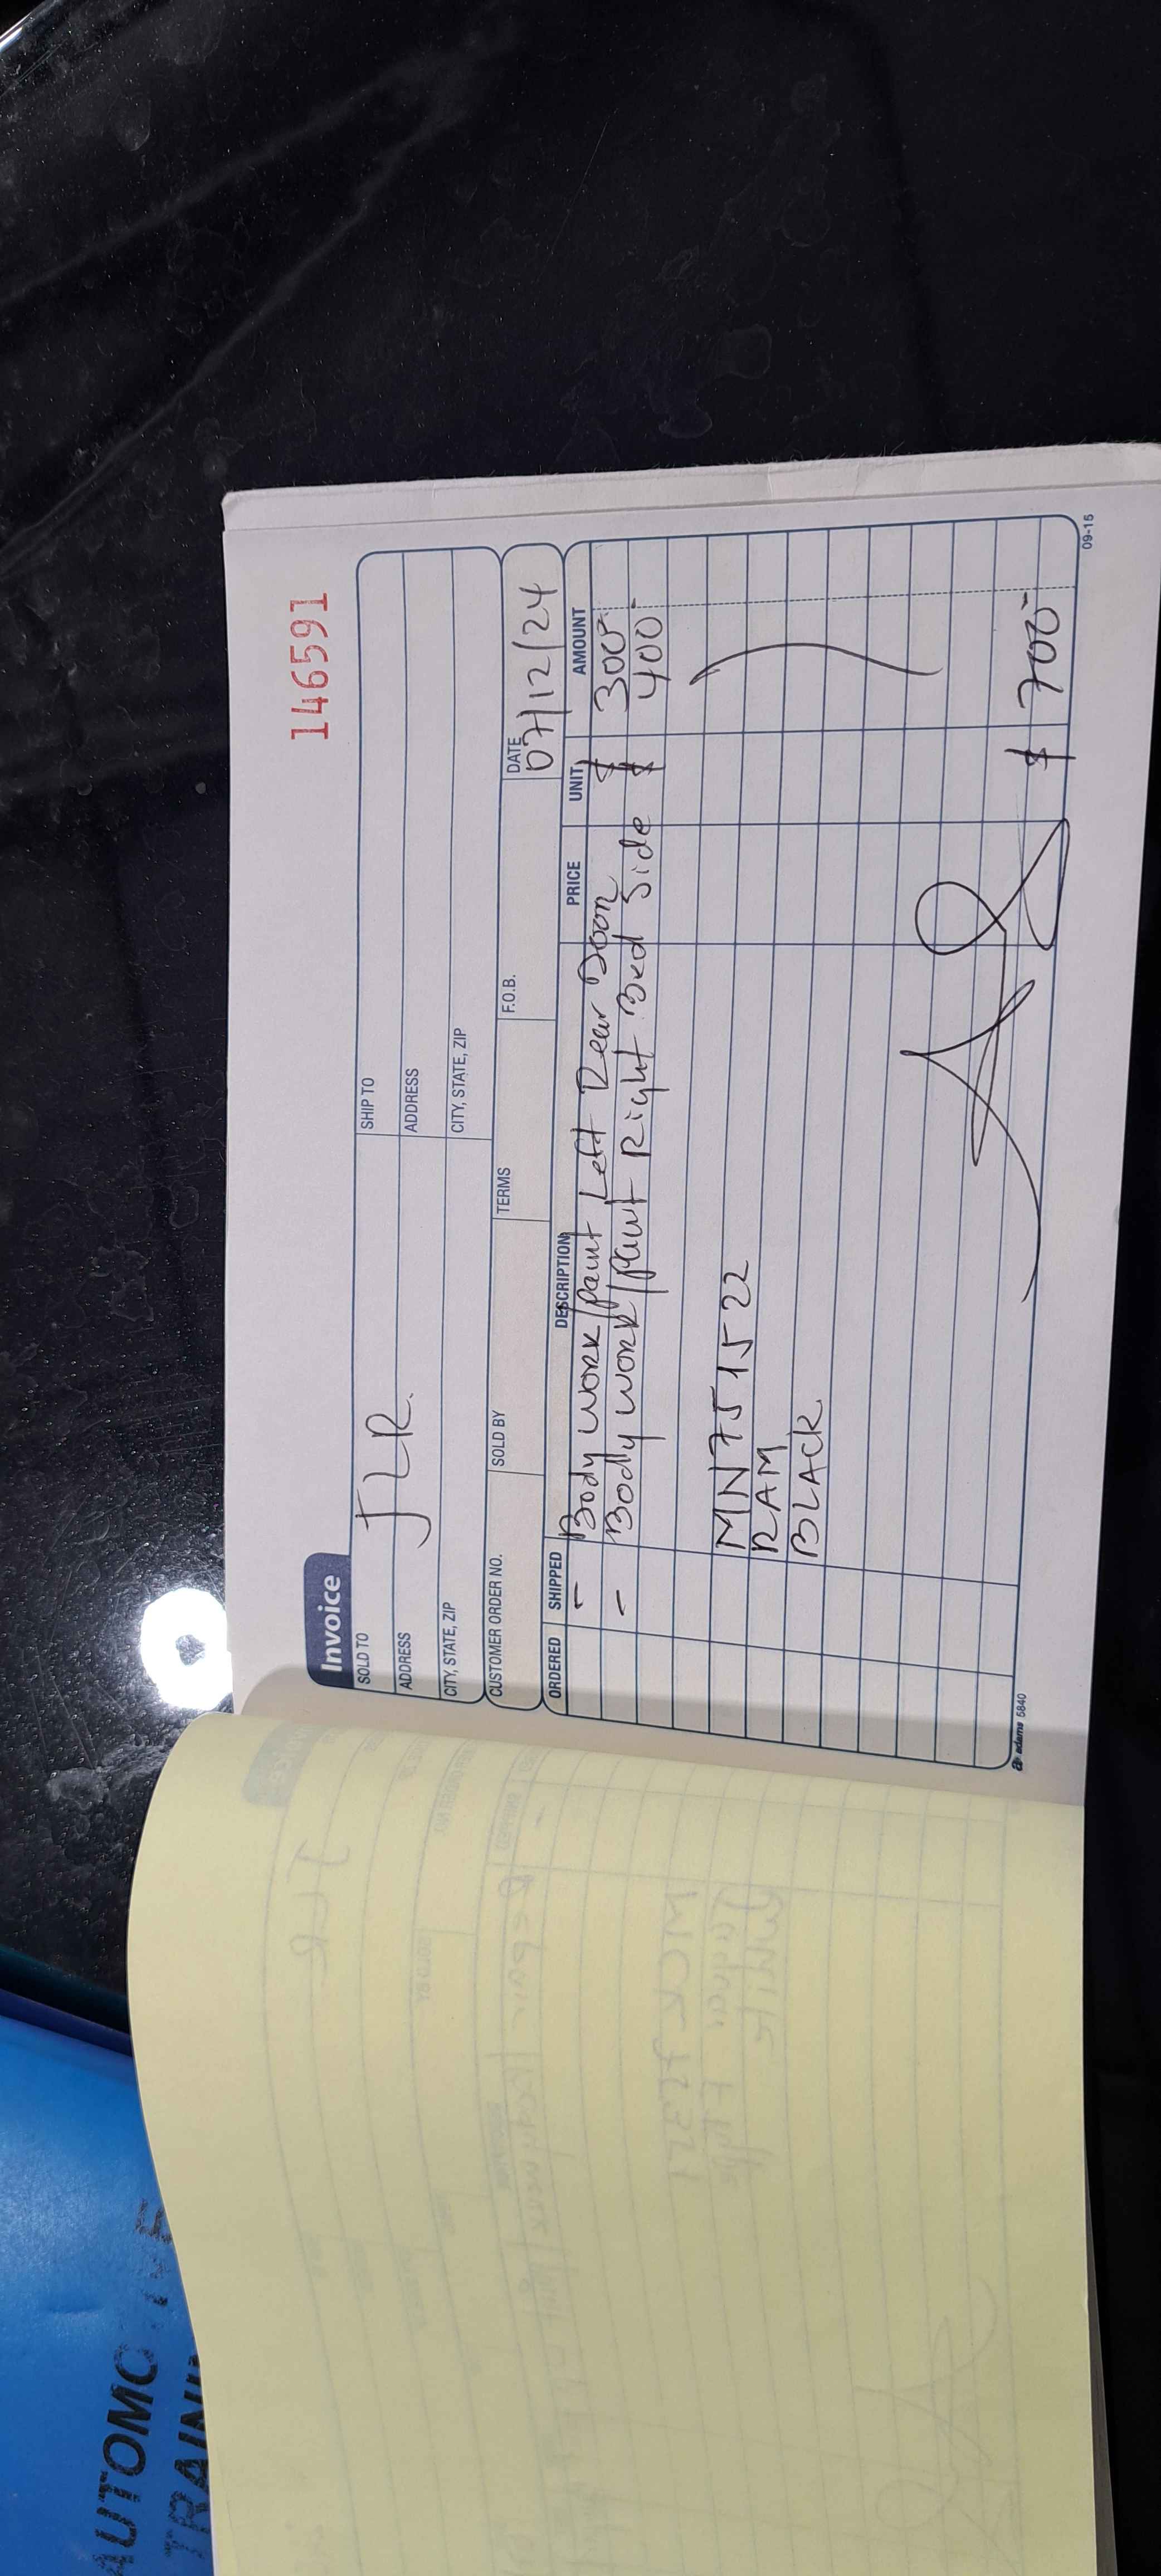 146591
Invoice
SOLD TO JLR.
SHIP TO
ADDRESS
ADDRESS
CITY, STATE, ZIP
CITY, STATE, ZIP
CUSTOMER ORDER NO. SOLD BY TERMS F.O.B. DATE 07/12/24
ORDERED SHIPPED DESCRIPTION PRICE UNIT AMOUNT
- Body work/paint Left Rear Door $ 300-
- Body work/paint Right Bed Side $ 400-
MN751522
RAM
BLACK
$ 700-
adams 5840
09-15
JLR
AUTOMOTIVE